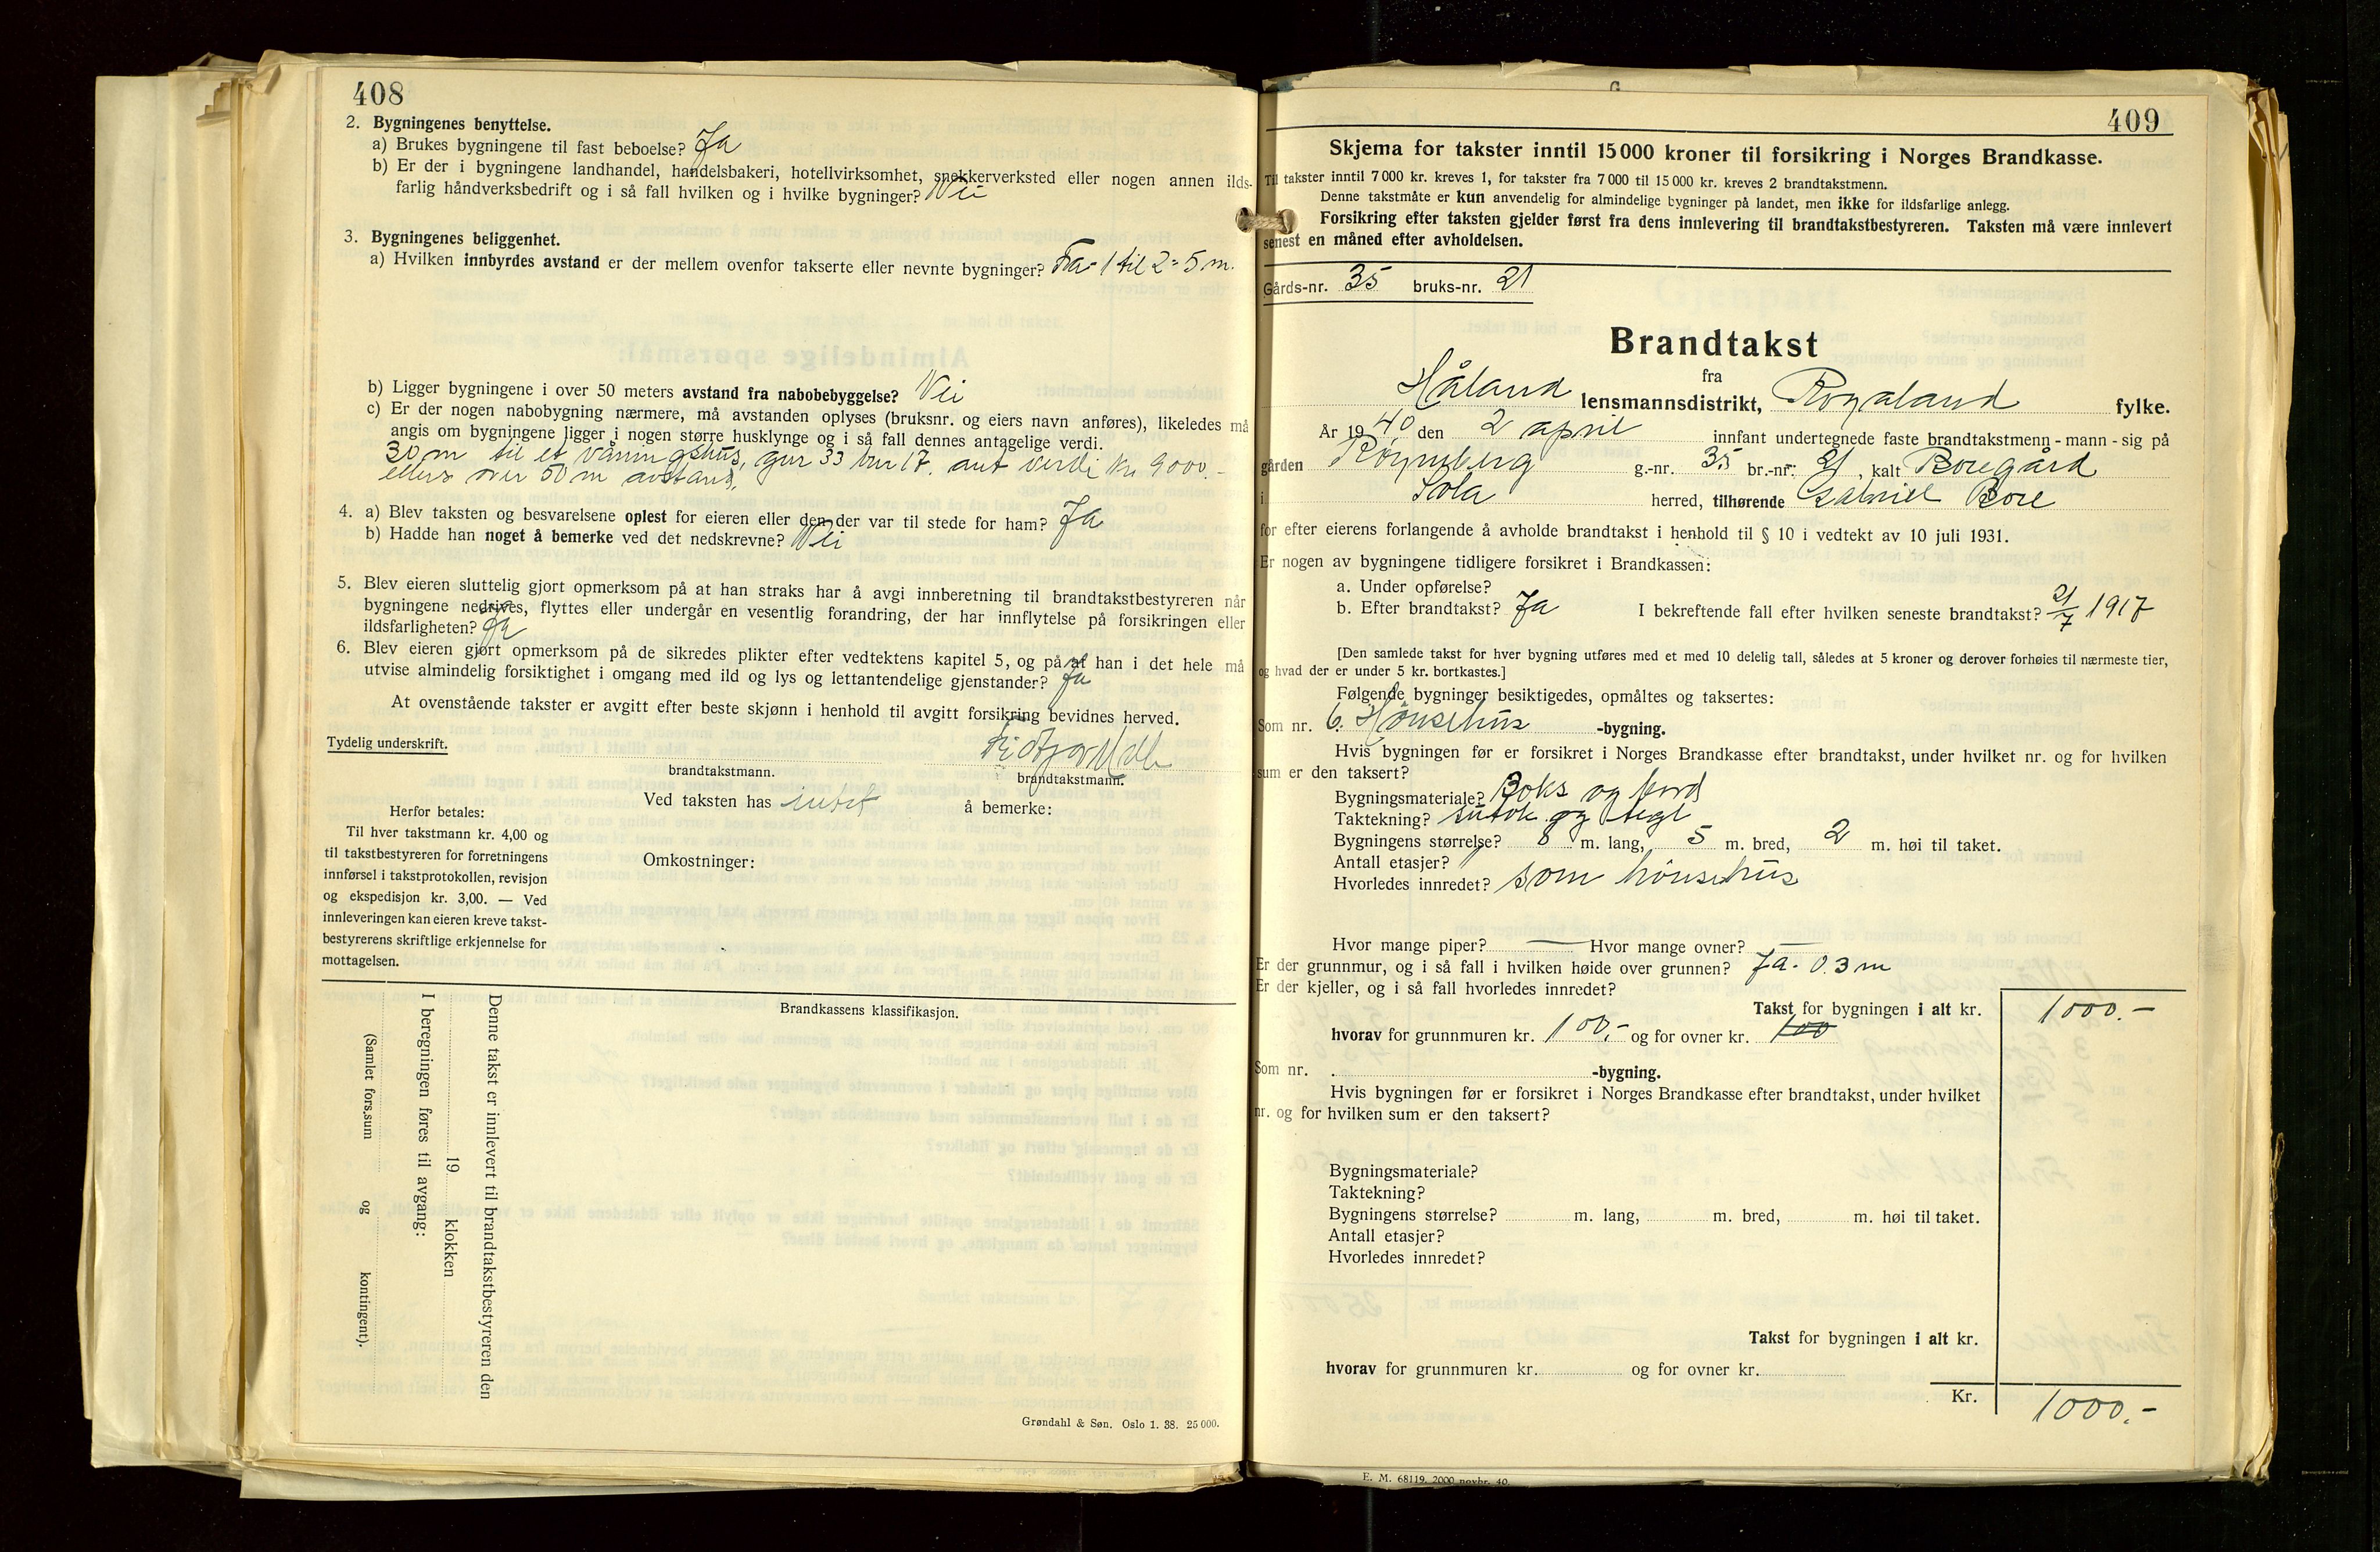 408
2. Bygningenes benyttelse.
a) Brukes bygningene til fast beboelse? Ja
b) Er der i bygningene landhandel, handelsbakeri, hotellvirksomhet, snekkerverksted eller nogen annen ilds-
farlig håndverksbedrift og i så fall hvilken og i hvilke bygninger? Nei
3. Bygningenes beliggenhet.
a) Hvilken innbyrdes avstand er der mellem ovenfor takserte eller nevnte bygninger? Fra 1 til 2 = 5 m.
b) Ligger bygningene i over 50 meters avstand fra nabobebyggelse? Nei
c) Er der nogen nabobygning nærmere, må avstanden oplyses (bruksnr. og eiers navn anføres), likeledes må
angis om bygningene ligger i nogen større husklynge og i så fall dennes antagelige verdi.
30 m til et våningshus, gnr 33 bnr 17. ant verdi kr 9000.-
ellers over 50 m avstand.
4. a) Blev taksten og besvarelsene oplest for eieren eller den der var til stede for ham? Ja
b) Hadde han noget å bemerke ved det nedskrevne? Nei
5. Blev eieren sluttelig gjort opmerksom på at han straks har å avgi innberetning til brandtakstbestyreren når
bygningene nedrives, flyttes eller undergår en vesentlig forandring, der har innflytelse på forsikringen eller
ildsfarligheten? Ja
6. Blev eieren gjort opmerksom på de sikredes plikter efter vedtektens kapitel 5, og på at han i det hele må
utvise almindelig forsiktighet i omgang med ild og lys og lettantendelige gjenstander? Ja
At ovenstående takster er avgitt efter beste skjønn i henhold til avgitt forsikring bevidnes herved.
Tydelig underskrift.
brandtakstmann. brandtakstmann.
Ved taksten has intet å bemerke:
Herfor betales:
Til hver takstmann kr. 4,00 og
til takstbestyreren for forretningens
innførsel i takstprotokollen, revisjon
og ekspedisjon kr. 3,00. — Ved
innleveringen kan eieren kreve takst-
bestyrerens skriftlige erkjennelse for
mottagelsen.
Omkostninger:
Brandkassens klassifikasjon.
Denne takst er innlevert til brandtakstbestyreren den
19 klokken
I beregningen føres til avgang:
(Samlet fors.sum og kontingent).
Grøndahl & Søn. Oslo 1. 38. 25 000.
409
Skjema for takster inntil 15 000 kroner til forsikring i Norges Brandkasse.
Til takster inntil 7 000 kr. kreves 1, for takster fra 7 000 til 15 000 kr. kreves 2 brandtakstmenn.
Denne takstmåte er kun anvendelig for almindelige bygninger på landet, men ikke for ildsfarlige anlegg.
Forsikring efter taksten gjelder først fra dens innlevering til brandtakstbestyreren. Taksten må være innlevert
senest en måned efter avholdelsen.
Gårds-nr. 35 bruks-nr. 21
Brandtakst
fra
Håland lensmannsdistrikt, Rogaland fylke.
År 1940 den 2 april innfant undertegnede faste brandtakstmenn - mann - sig på
gården Røyneberg g.-nr. 35 br.-nr. 21, kalt Boregård
i Sola herred, tilhørende Gabriel Bore
for efter eierens forlangende å avholde brandtakst i henhold til § 10 i vedtekt av 10 juli 1931.
Er nogen av bygningene tidligere forsikret i Brandkassen:
a. Under opførelse?
b. Efter brandtakst? Ja I bekreftende fall efter hvilken seneste brandtakst? 21/7 1917
[Den samlede takst for hver bygning utføres med et med 10 delelig tall, således at 5 kroner og derover forhøies til nærmeste tier,
og hvad der er under 5 kr. bortkastes.]
Følgende bygninger besiktigedes, opmåltes og taksertes:
Som nr. 6. Hönsehus -bygning.
Hvis bygningen før er forsikret i Norges Brandkasse efter brandtakst, under hvilket nr. og for hvilken
sum er den taksert?
Bygningsmateriale? Boks og bord
Taktekning? sutak og tegl
Bygningens størrelse? 8 m. lang, 5 m. bred, 2 m. høi til taket.
Antall etasjer? 1
Hvorledes innredet? som hönsehus
Hvor mange piper? — Hvor mange ovner? —
Er der grunnmur, og i så fall i hvilken høide over grunnen? Ja. 0.3 m
Er der kjeller, og i så fall hvorledes innredet?
Takst for bygningen i alt kr. 1000.-
hvorav for grunnmuren kr. 100.- og for ovner kr. 100
Som nr. . -bygning.
Hvis bygningen før er forsikret i Norges Brandkasse efter brandtakst, under hvilket
nr. og for hvilken sum er den taksert?
Bygningsmateriale?
Taktekning?
Bygningens størrelse? m. lang, m. bred, m. høi til taket.
Antall etasjer?
Hvorledes innredet?
Takst for bygningen i alt kr.
hvorav for grunnmuren kr. og for ovner kr.
Kr. 1000.-
E. M. 68119. 2000 novbr. 40.